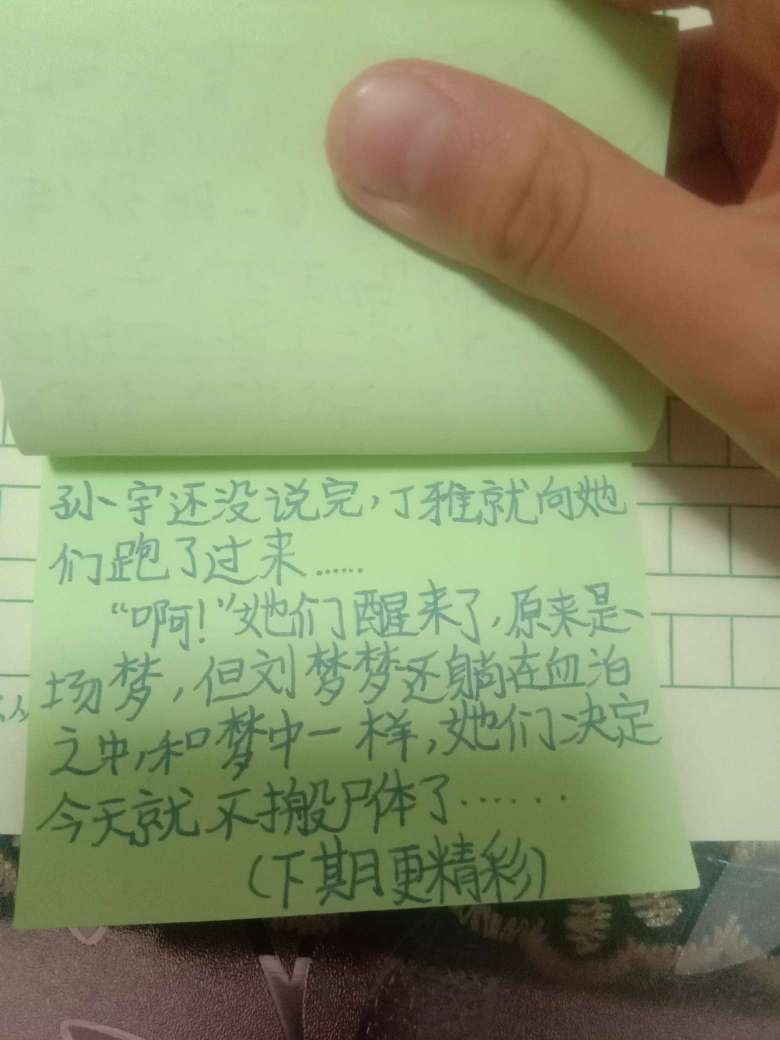 孙宇还没说完，丁雅就向她
们跑了过来……
“啊！”她们醒来了，原来是一
场梦，但刘梦梦还躺在血泊
之中，和梦中一样，她们决定
今天就不搬尸体了……
（下期更精彩）